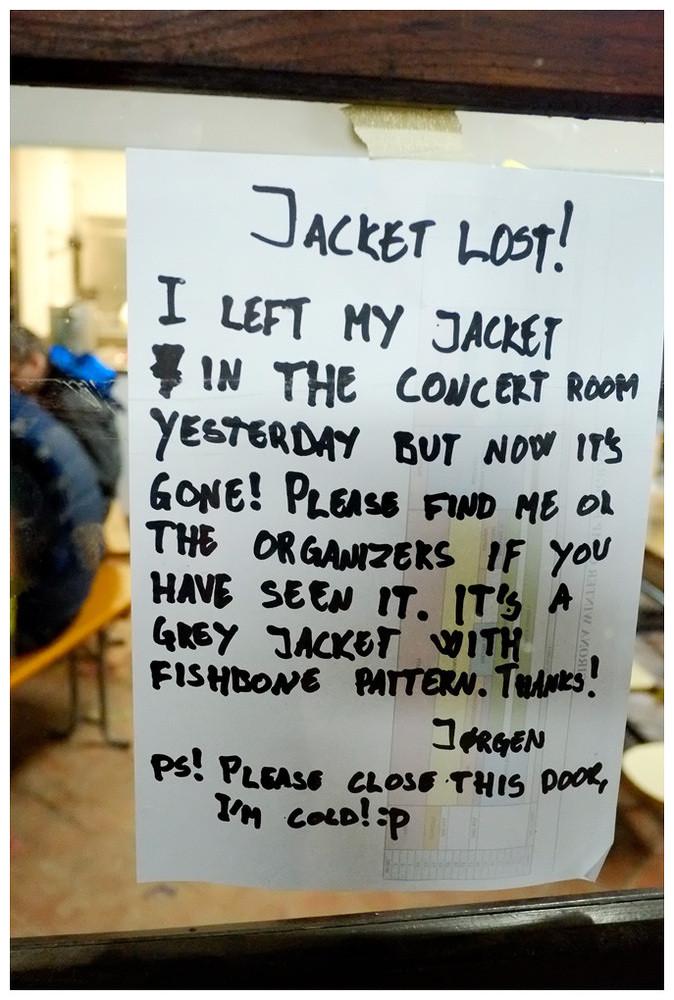 JACKET LOST!
I LEFT MY JACKET
IN THE CONCERT ROOM
YESTERDAY BUT NOW IT'S
GONE! PLEASE FIND ME OR
THE ORGANIZERS IF YOU
HAVE SEEN IT. IT'S A
GREY JACKET WITH
FISHBONE PATTERN. THANKS!
JØRGEN
PS! PLEASE CLOSE THIS DOOR,
I'M COLD! :P